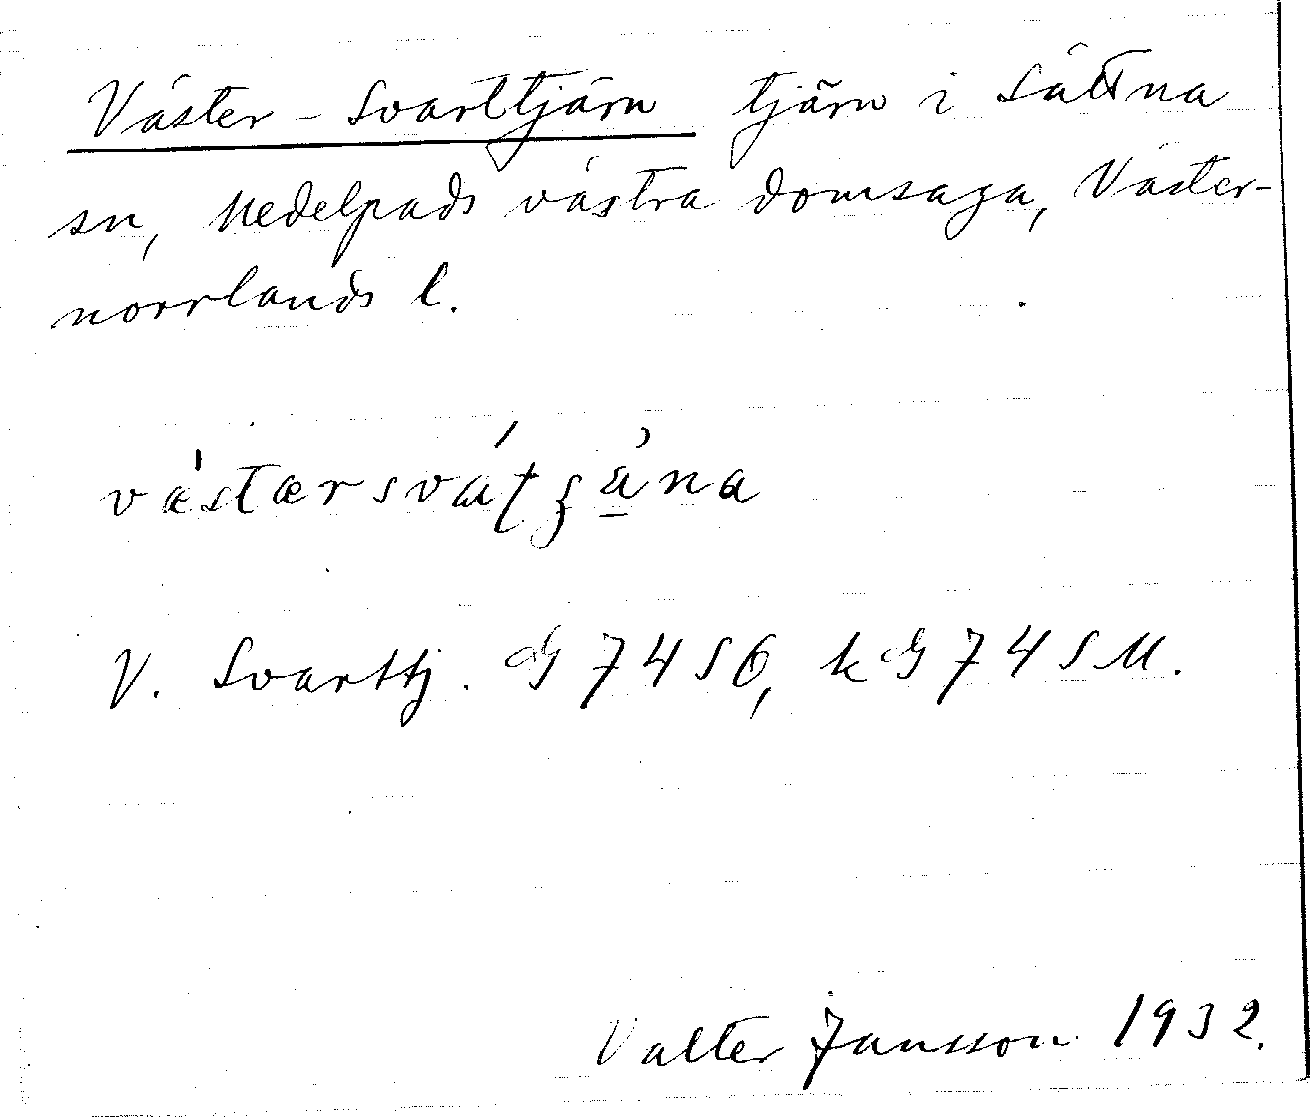 Väster-Svarttjärn tjärn i Sättna
sn, Medelpads västra domsaga, Väster-
norrlands l.
V. Svarttj. G 7456, k G 74 SM.
Valter Jansson 1932.